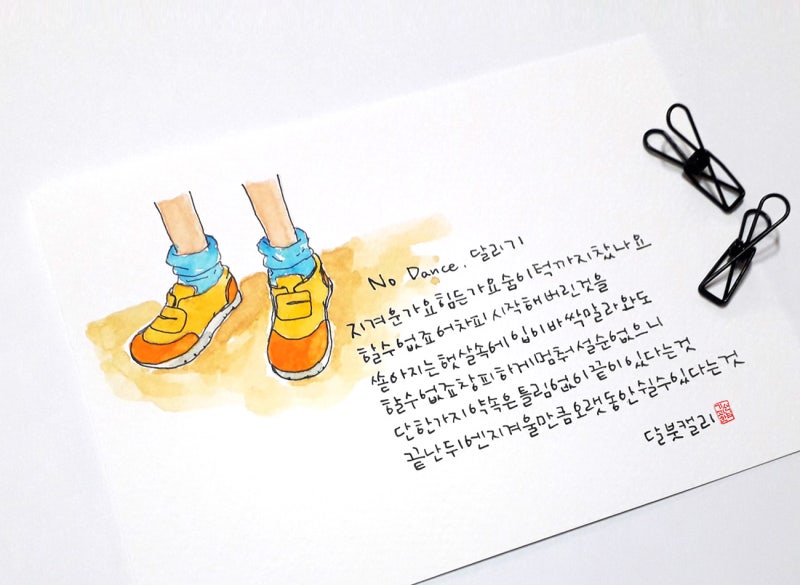 No Dance. 달리기
지겨운가요 힘든가요 숨이 턱까지 찼나요
할수 없죠 어차피 시작해 버린것을
쏟아지는 햇살속에 입이 바싹 말라와도
할수 없죠 창피하게 멈춰 설순 없으니
단한가지 약속은 틀림없이 끝이 있다는것
끝난 뒤엔 지겨울만큼 오랫동안 쉴수 있다는것
달붓캘리